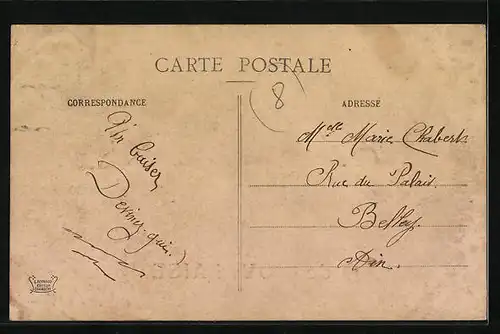 CARTE POSTALE
CORRESPONDANCE
Un baiser
Devinez-qui.
8
ADRESSE
Melle Marie Chabert
Rue du Palais
Belley.
Ain.